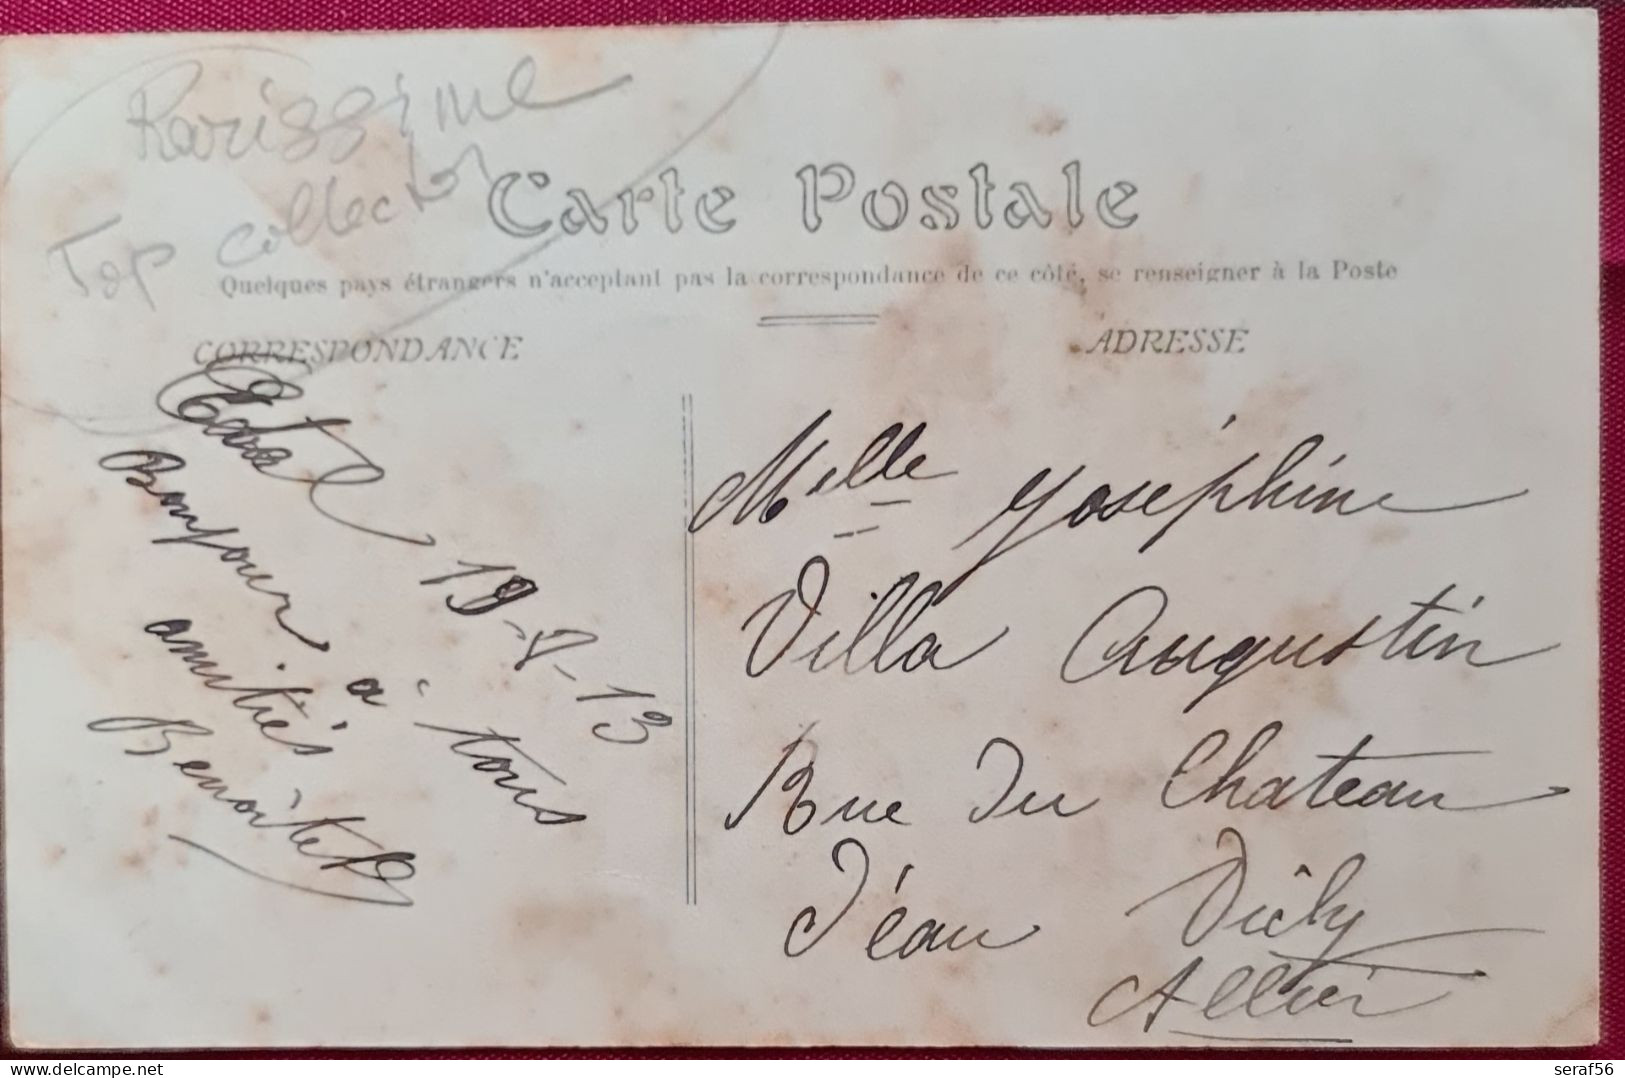 Rarissime
Top collector
Carte Postale
Quelques pays étrangers n'acceptant pas la correspondance de ce côté, se renseigner à la Poste
CORRESPONDANCE
ADRESSE
19-8-13
Bonjour à tous
amitiés
Benoite
Melle Joséphine
Villa Augustin
Rue Du Chateau
D'éau Vichy
Allier
delcampe.net
seraf56